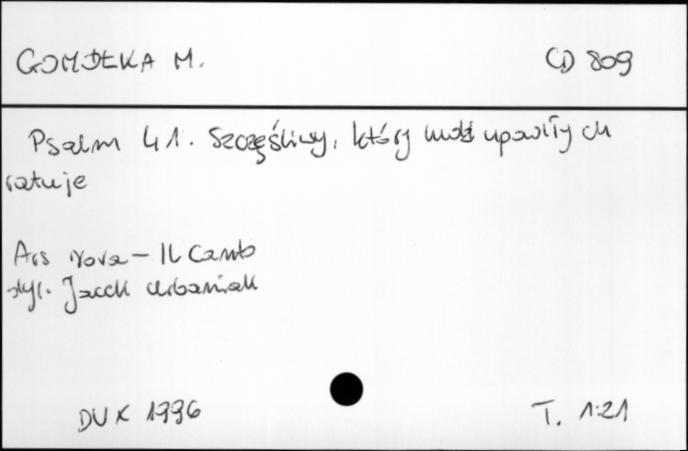 GOMÓŁKA M. CD 809
Psalm 41. Szczęśliwy, który ludzi upadłych
ratuje
Ars Nova – Il Canto
dyr. Jacek Urbaniak
DUX 1996 T. 1:21